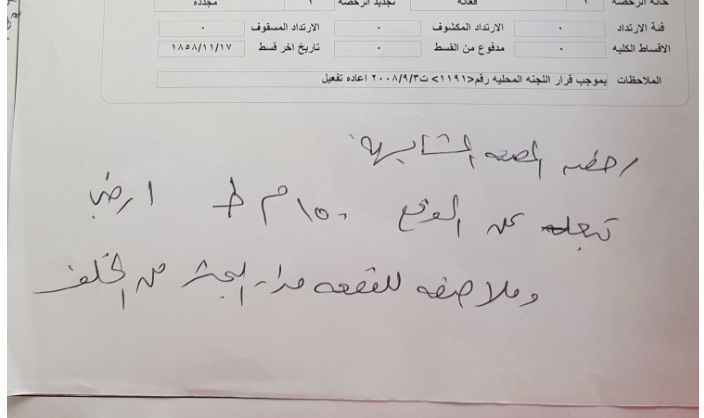 حالة الرخصة ١ فعالة تجديد الرخصة ١ مجددة
فئة الارتداد ٠ الارتداد المكشوف ٠ الارتداد المسقوف ٠
الاقساط الكليه ٠ مدفوع من القسط ٠ تاريخ اخر قسط ١٨٥٨/١١/١٧
الملاحظات بموجب قرار اللجنه المحليه رقم<١١٩١> ت٢٠٠٨/٩/٣ اعاده تفعيل
رخصه المشابهه
تبعد عن الموقع ١٥٠ م ط ارضي
وملاصقه للقطعه من الخلف